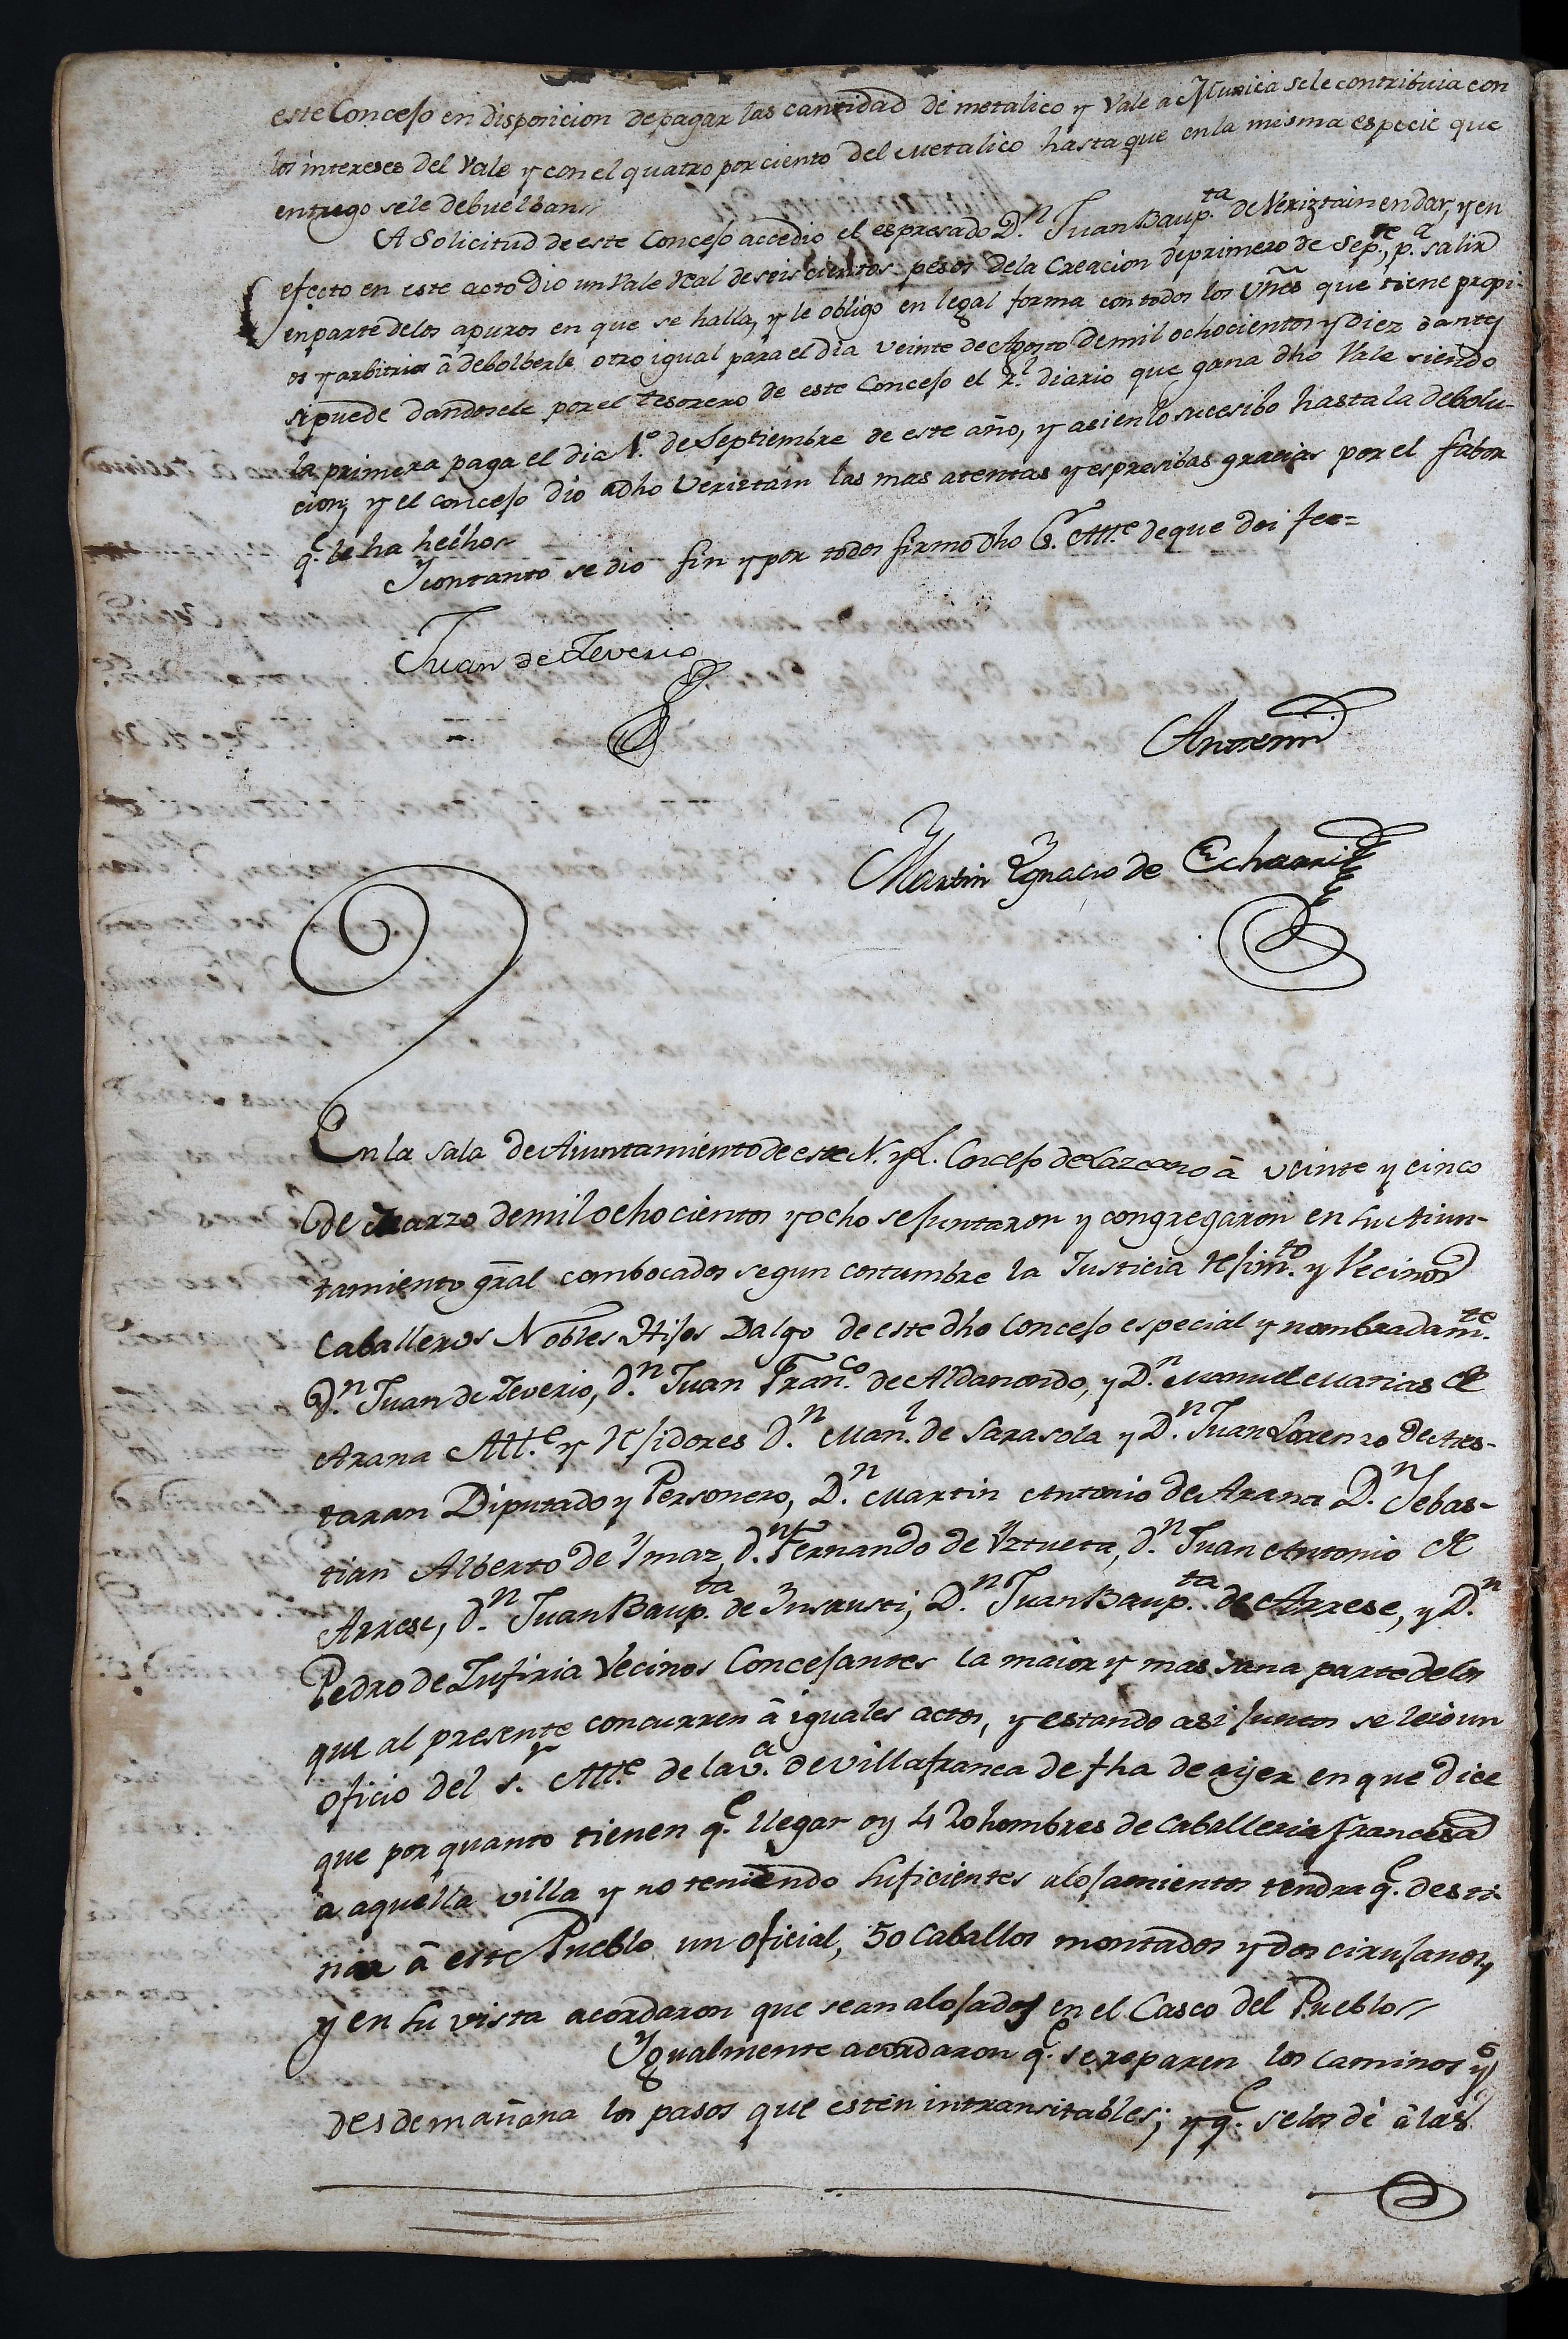 este Concejo en disposicion de pagar las cantidad de metalico y Vale a Munica se le contribuia con
los intereses del Vale y con el quatro por ciento del Metalico hasta que en la misma especie que
entrego se le debuelban
A Solicitud de este Concejo accedio el espresado D.n Juan Baup.ta de Veriztain en dar, y en
efecto en este acto dio un Vale Real de seis cientos pesos de la Creacion de primero de Sep.re, p.a salir
en parte de los apuros en que se halla, y le obligo en legal forma con todos los vñes que tiene propi-
os y arbitrios â debolberle otro igual para el dia veinte de Agosto de mil ochocientos y diez o antes
si puede dandosele por el tesorero de este Concejo el r.l diario que gana dho Vale siendo
la primera paga el dia 1.o de Septiembre de este año, y asi en lo sucesibo hasta la debolu-
cion, y el concejo dio a dho Veriztain las mas atentas y espresibas gracias por el fabor
q.e le ha hecho
Y con tanto se dio fin y por todos firmo dho S.r Alt.e de que doi fee=
Juan de Zeverio
Ante mi
Martin Ygnacio de Echaarri
En la Sala de Aiuntamiento de este N. y L. Concejo de Lazcano â veinte y cinco
de Marzo de mil ochocientos y ocho se juntaron y congregaron en su Aiun-
tamiento gral combocados segun costumbre la Justicia Rejim.to y Vecinos
Caballeros Nobles Hijos Dalgo de este dho Concejo especial y nombradam.te
D.n Juan de Zeverio, d.n Juan Fran.co de Aldanondo, y D.n Manuel Matias de
Arana Alt.e y Rejidores D.n Man.l de Sarasola y D.n Juan Lorenzo de Ares-
taran Diputado y Personero, D.n Martin Antonio de Arana D.n Sebas-
tian Alberto de Ymaz, d.n Fernando de Yztueta, d.n Juan Antonio de
Arrese, d.n Juan Baup.ta de Ynsausti, D.n Juan Baup.ta de Arrese, y D.n
Pedro de Zufiria Vecinos Concejantes la maior y mas sana parte de los
que al presente concurren â iguales actos, y estando asi juntos se leio un
oficio del s.r Alt.e de la v.a de Villafranca de fha de ayer en que dice
que por quanto tienen q.e llegar oy 420 hombres de Caballeria francesa
a aquella villa y no teniendo suficientes alojamientos tendra q.e desti-
nar â este Pueblo un oficial, 50 Caballos montados y dos cirujanos,
y en su vista acordaron que sean alojados en el Casco del Pueblo
Ygualmente acordaron q.e se reparen los caminos y
desde mañana los pasos que esten intransitables; y q.e se los dé â las